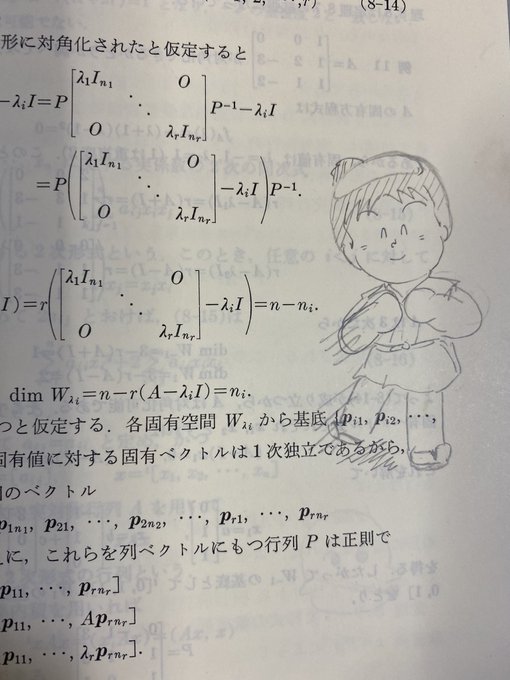 (8-14)
形に対角化されたと仮定すると
-λ_iI=P[λ_1I_{n_1} ⋱ λ_rI_{n_r} O O]P^{-1}-λ_iI
=P([λ_1I_{n_1} O ⋱ O λ_rI_{n_r}]-λ_iI)P^{-1}.
I)=r([λ_1I_{n_1} O ⋱ O λ_rI_{n_r}]-λ_iI)=n-n_i.
dim W_{λ_i}=n-r(A-λ_iI)=n_i.
つと仮定する.各固有空間 W_{λ_i} から基底 {p_{i1}, p_{i2}, ⋯,
固有値に対する固有ベクトルは1次独立であるから,
個のベクトル
p_{1n_1}, p_{21}, ⋯, p_{2n_2}, ⋯, p_{r1}, ⋯, p_{rn_r}
に,これらを列ベクトルにもつ行列 P は正則で
p_{11}, ⋯, p_{rn_r}]
p_{11}, ⋯, Ap_{rn_r}]
p_{11}, ⋯, λ_rp_{rn_r}].